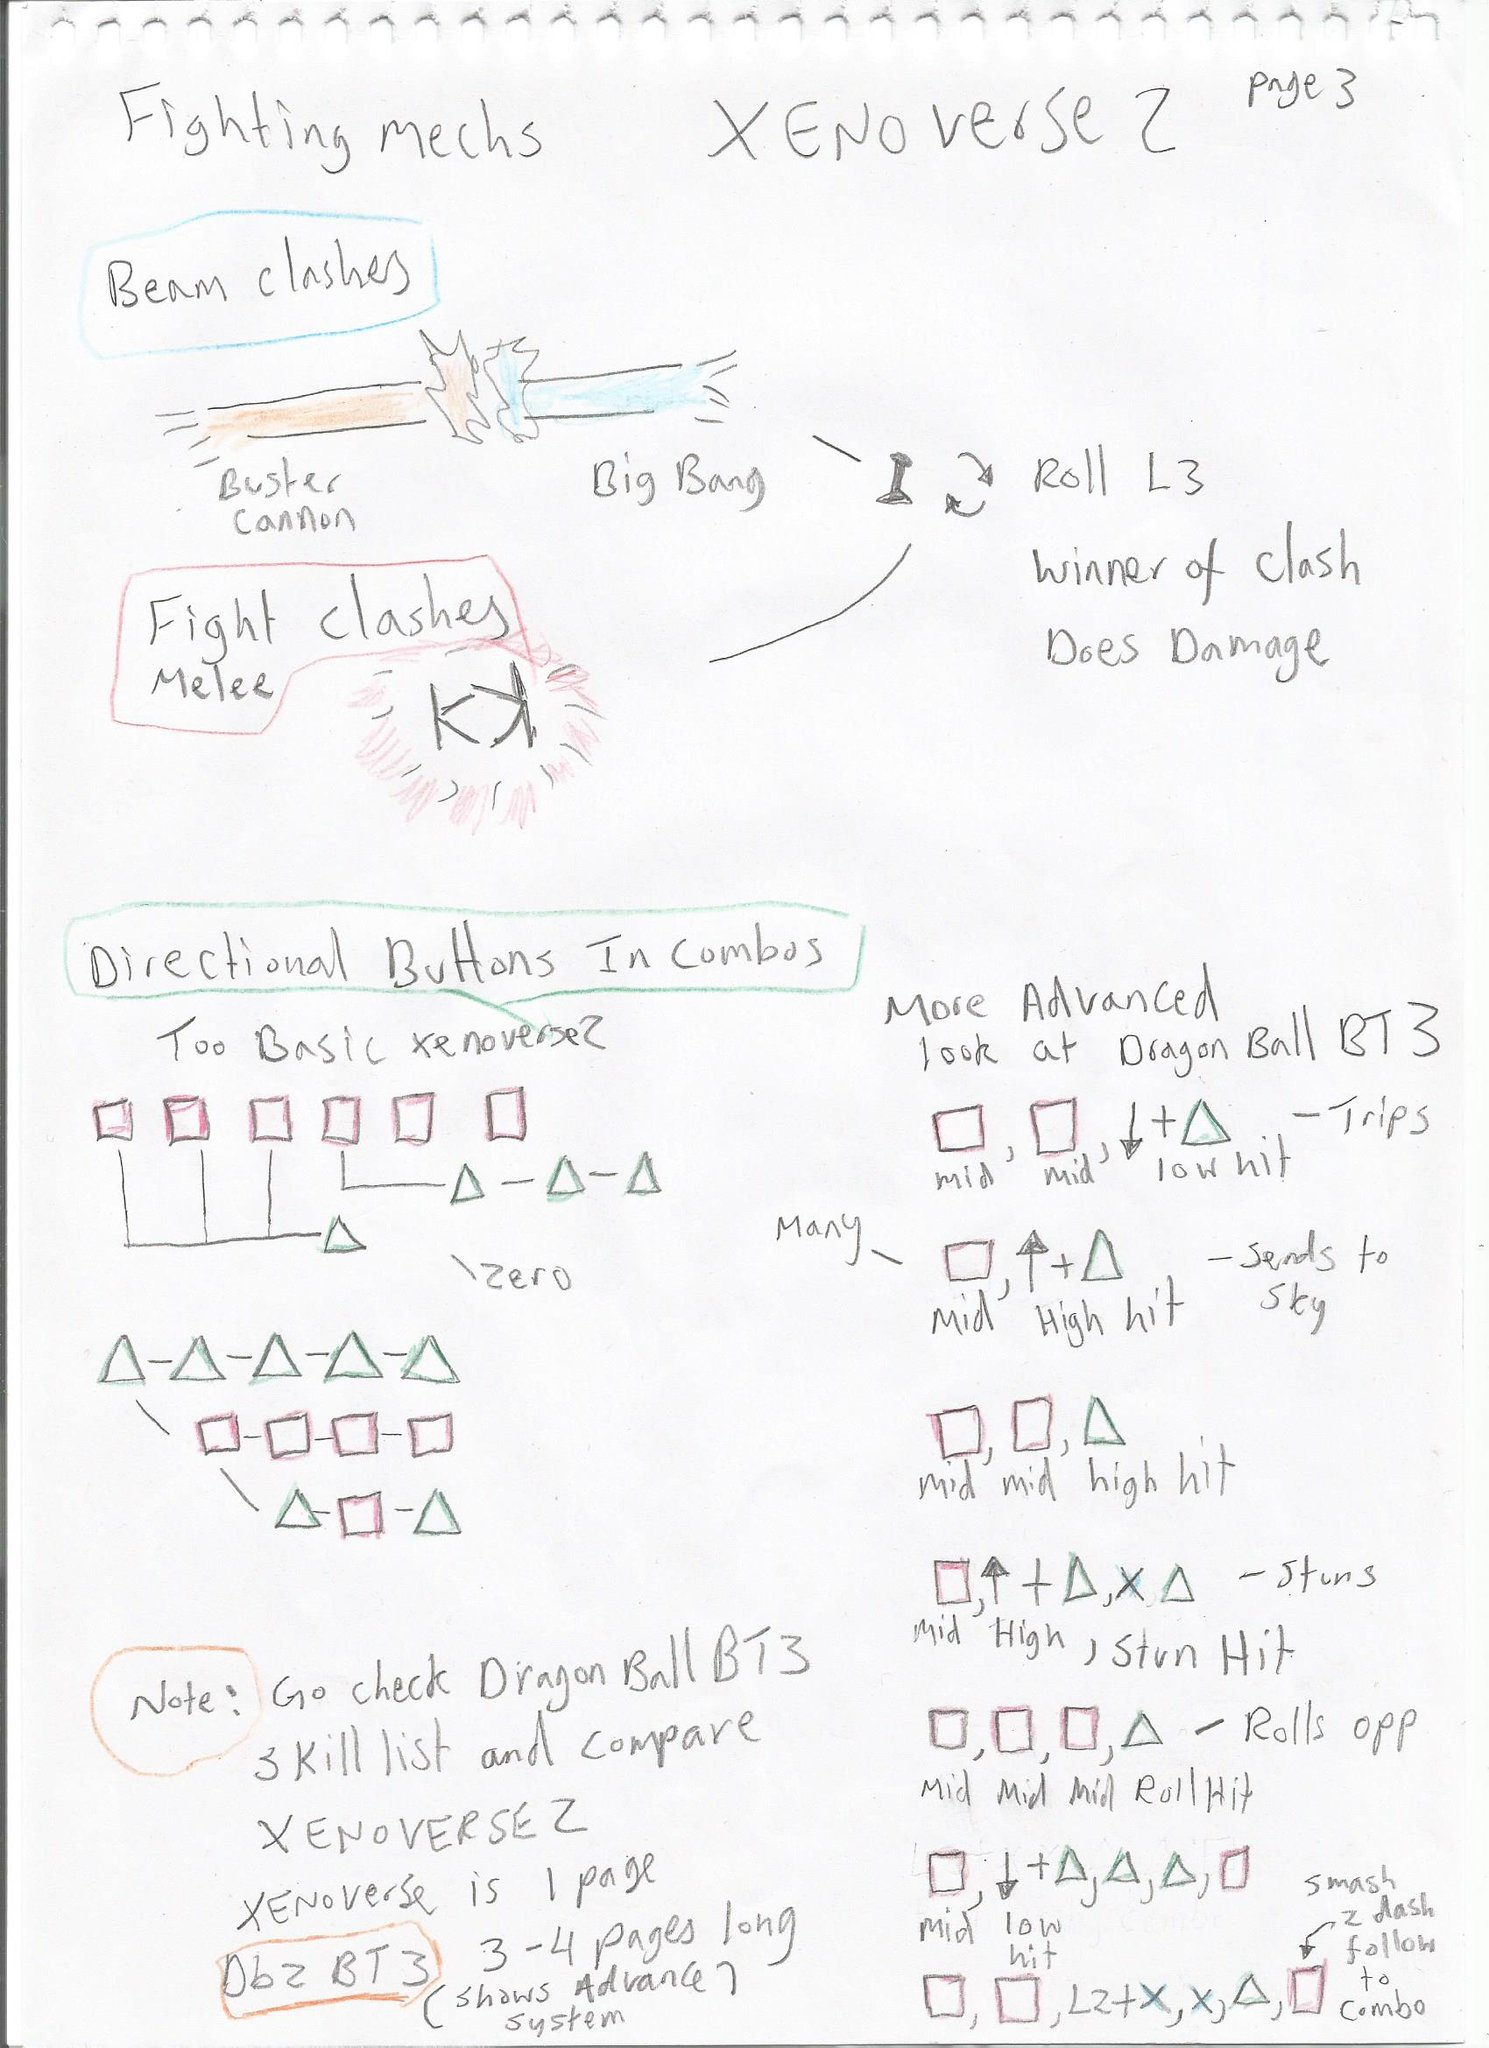 Fighting Mechs
XENOVERSE 2
page 3
Beam clashes
Buster
Cannon
Big Bang
Roll L3
Winner of Clash
Does Damage
Fight clashes
Melee
Directional Buttons In Combos
Too Basic Xenoverse2
zero
More Advanced
look at Dragon Ball BT3
- Trips
mid mid low hit
Many
- Sends to
Sky
Mid High hit
mid mid high hit
X - Stuns
Mid High, Stun Hit
- Rolls opp
Mid Mid Mid Roll Hit
Mid low
hit
smash
2 dash
follow
to
combo
L2+X, X,
Note: Go check Dragon Ball BT3
skill list and compare
XENOVERSE 2
XENOverse is 1 page
Dbz BT3 3-4 pages long
(shows Advance)
system